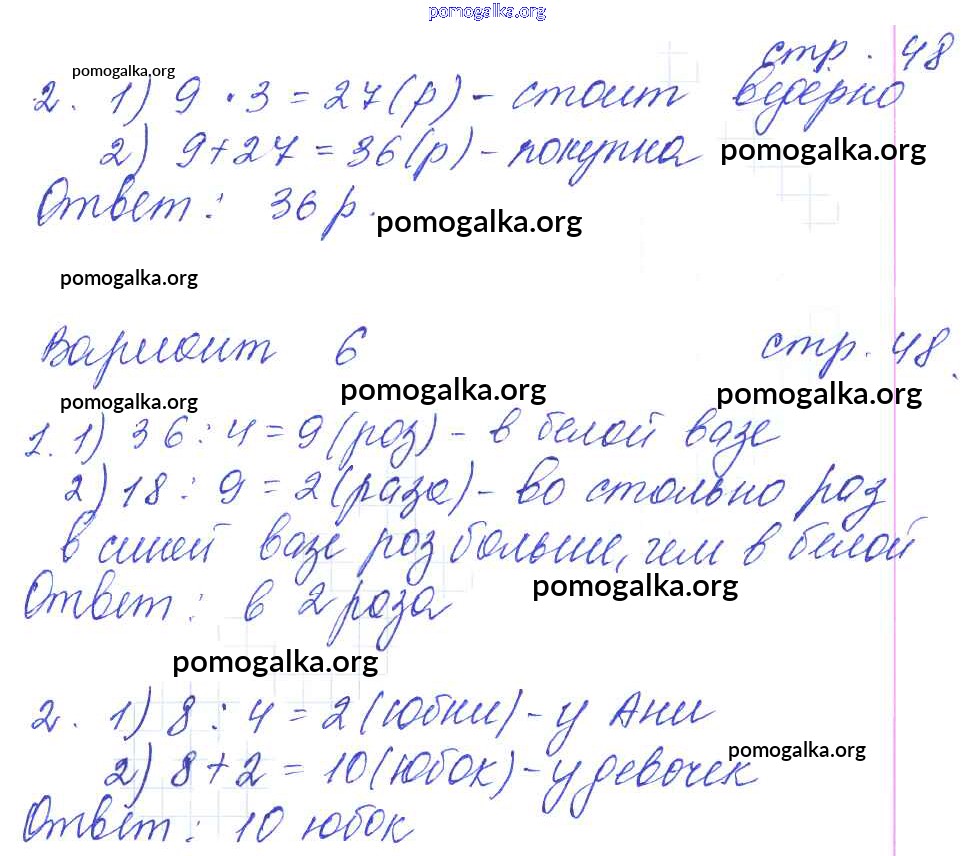 pomogalka.org
стр. 48
pomogalka.org
2. 1) 9 · 3 = 27 (р) - стоит ведерко
2) 9 + 27 = 36 (р) - покупка
pomogalka.org
Ответ: 36 р.
pomogalka.org
pomogalka.org
Вариант 6 стр. 48.
pomogalka.org
pomogalka.org
pomogalka.org
1. 1) 36 : 4 = 9 (роз) - в белой вазе
2) 18 : 9 = 2 (раза) - во столько раз
в синей вазе роз больше, чем в белой
pomogalka.org
Ответ: в 2 раза
pomogalka.org
2. 1) 8 : 4 = 2 (юбки) - у Ани
pomogalka.org
2) 8 + 2 = 10 (юбок) - у девочек
Ответ: 10 юбок